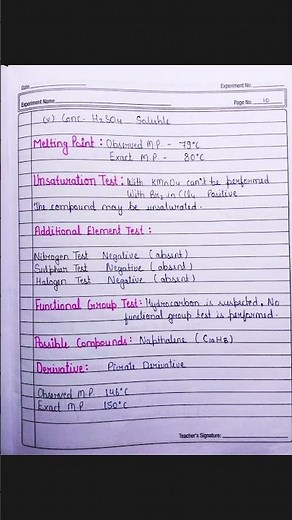 Date
Experiment No.
Experiment Name
Page No. 10
(v) Conc. H2SO4 Soluble
Melting Point : Observed M.P - 79°C
Exact M.P - 80°C
Unsaturation Test : With KMnO4 can't be performed
With Br2 in CCl4 Positive
The compound may be unsaturated.
Additional Element Test :
Nitrogen Test Negative (absent)
Sulphur Test Negative (absent)
Halogen Test Negative (absent)
Functional Group Test : Hydrocarbon is suspected. No
functional group test is performed.
Possible Compounds : Napthalene (C10H8)
Derivative : Picrate Derivative
Observed M.P 146°C
Exact M.P 150°C
Teacher's Signature: